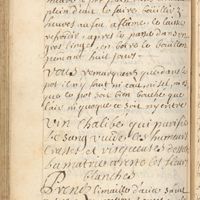 plein d'eau le faire bouillir 2
heures au feu a flame le laisser
refroidir apres le passer dans un
gros linge en boire le bouillon
pendant huit jours
vous remarquerez que dans le
pot il n'y faut ni eau ni sel, et
que le pot soit bien bouché que
l'air ni quoique ce soit n'y entre
vin chalibé qui purifie
le sang vuide les humeurs
crasses et visqueuses de
la matrice arreste les fleurs
blanches
Prenés limaille d'acier